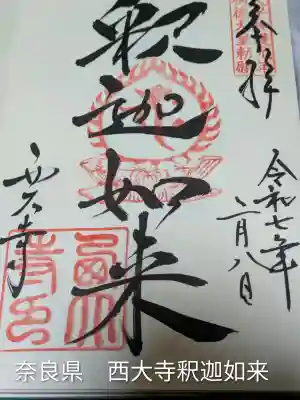 奉拝
令和七年
二月八日
釈迦如来
西大寺
奈良県　西大寺釈迦如来